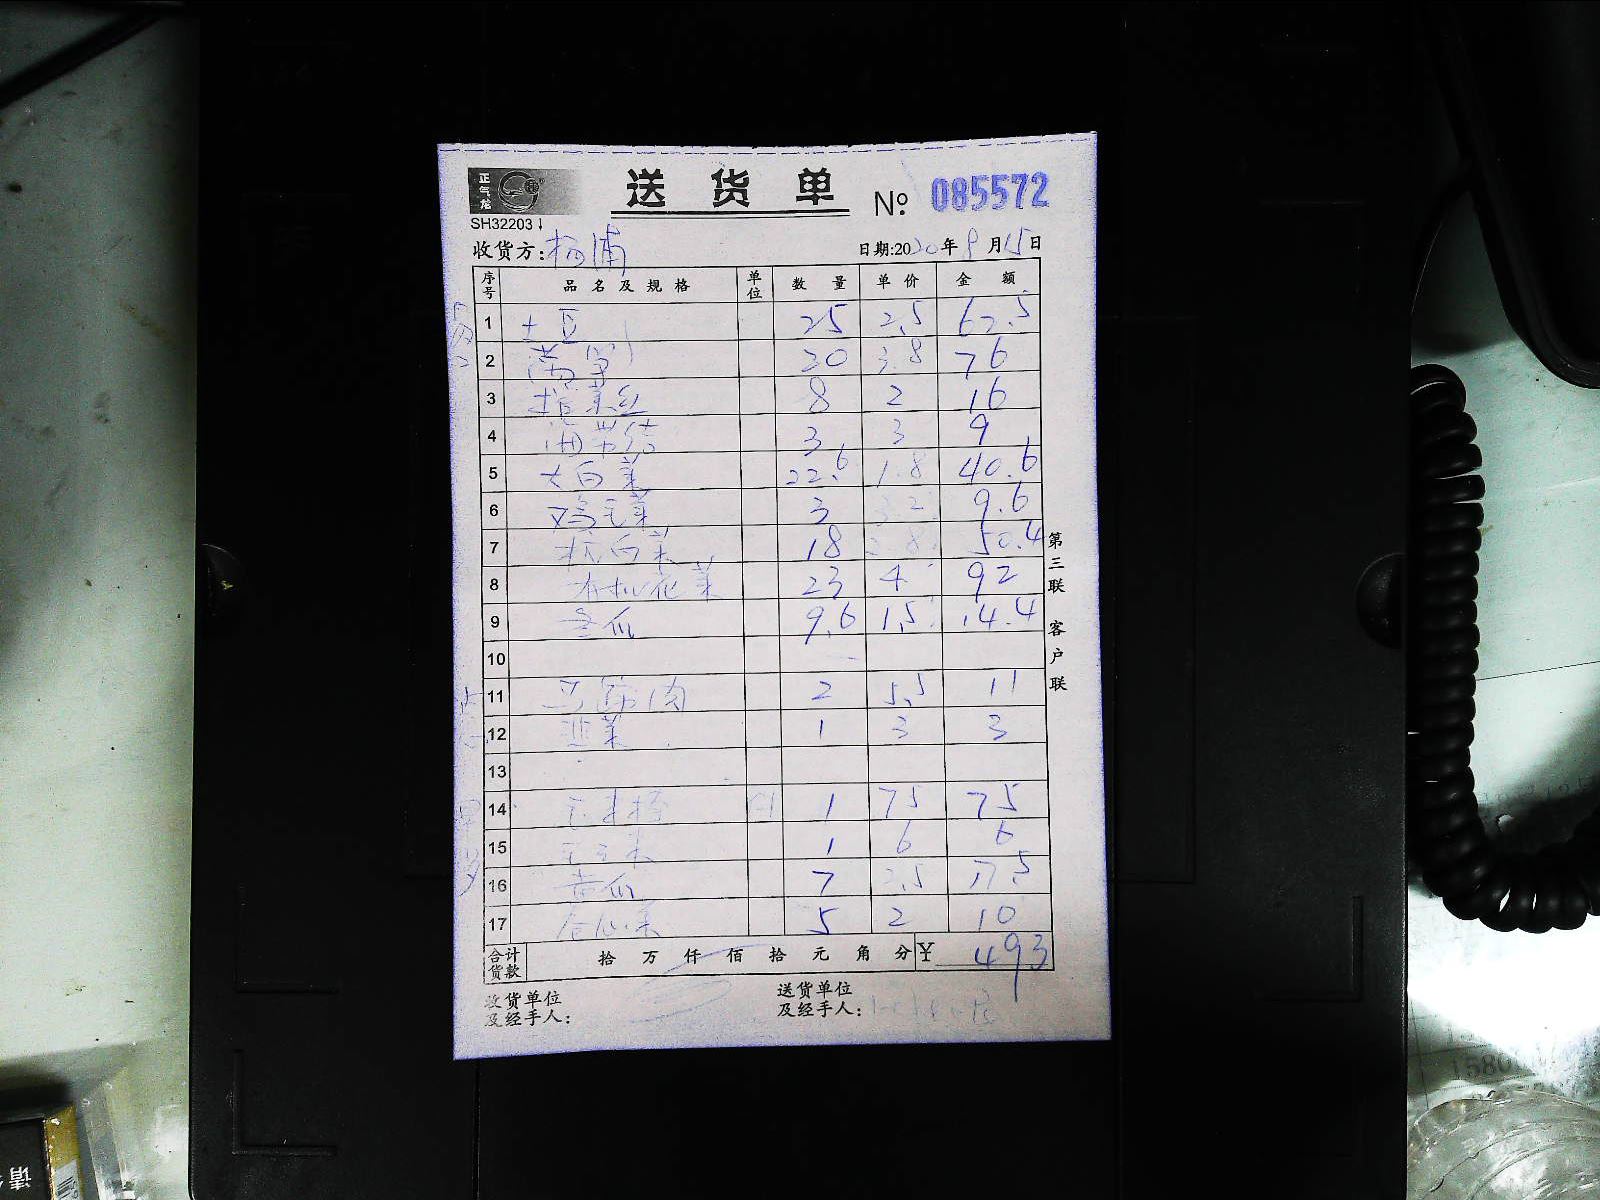 正气龙
送货单 № 085572
SH32203
收货方:杨浦 日期:2020年9月15日
序号 品名及规格 单位 数量 单价 金额
1 土豆 25 2.5 62.5
2 莴笋 20 3.8 76
3 榨菜丝 8 2 16
4 3 3 9
5 大白菜 22.6 1.8 40.6
6 鸡毛菜 3 3.2 9.6
7 杭白菜 18 2.8 50.4
8 有机花菜 23 4 92
9 冬瓜 9.6 1.5 14.4
10
11 2 5.5 11
12 韭菜 1 3 3
13
14 1 75 75
15 玉米 1 6 6
16 黄瓜 7 2.5 17.5
17 5 2 10
合计货款 拾 万 仟 佰 拾 元 角 分 ¥ 493
收货单位及经手人:
送货单位及经手人:
第三联 客户联
请